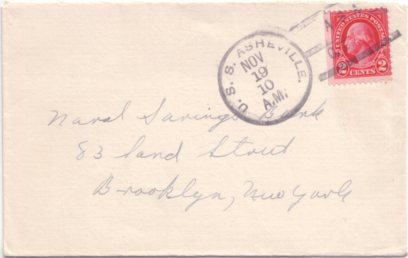 U. S. S. ASHEVILLE.
NOV
19
10
A.M.
UNITED STATES POSTAGE
2 CENTS 2
Naval Savings Bank
83 Sand Street
Brooklyn, New York